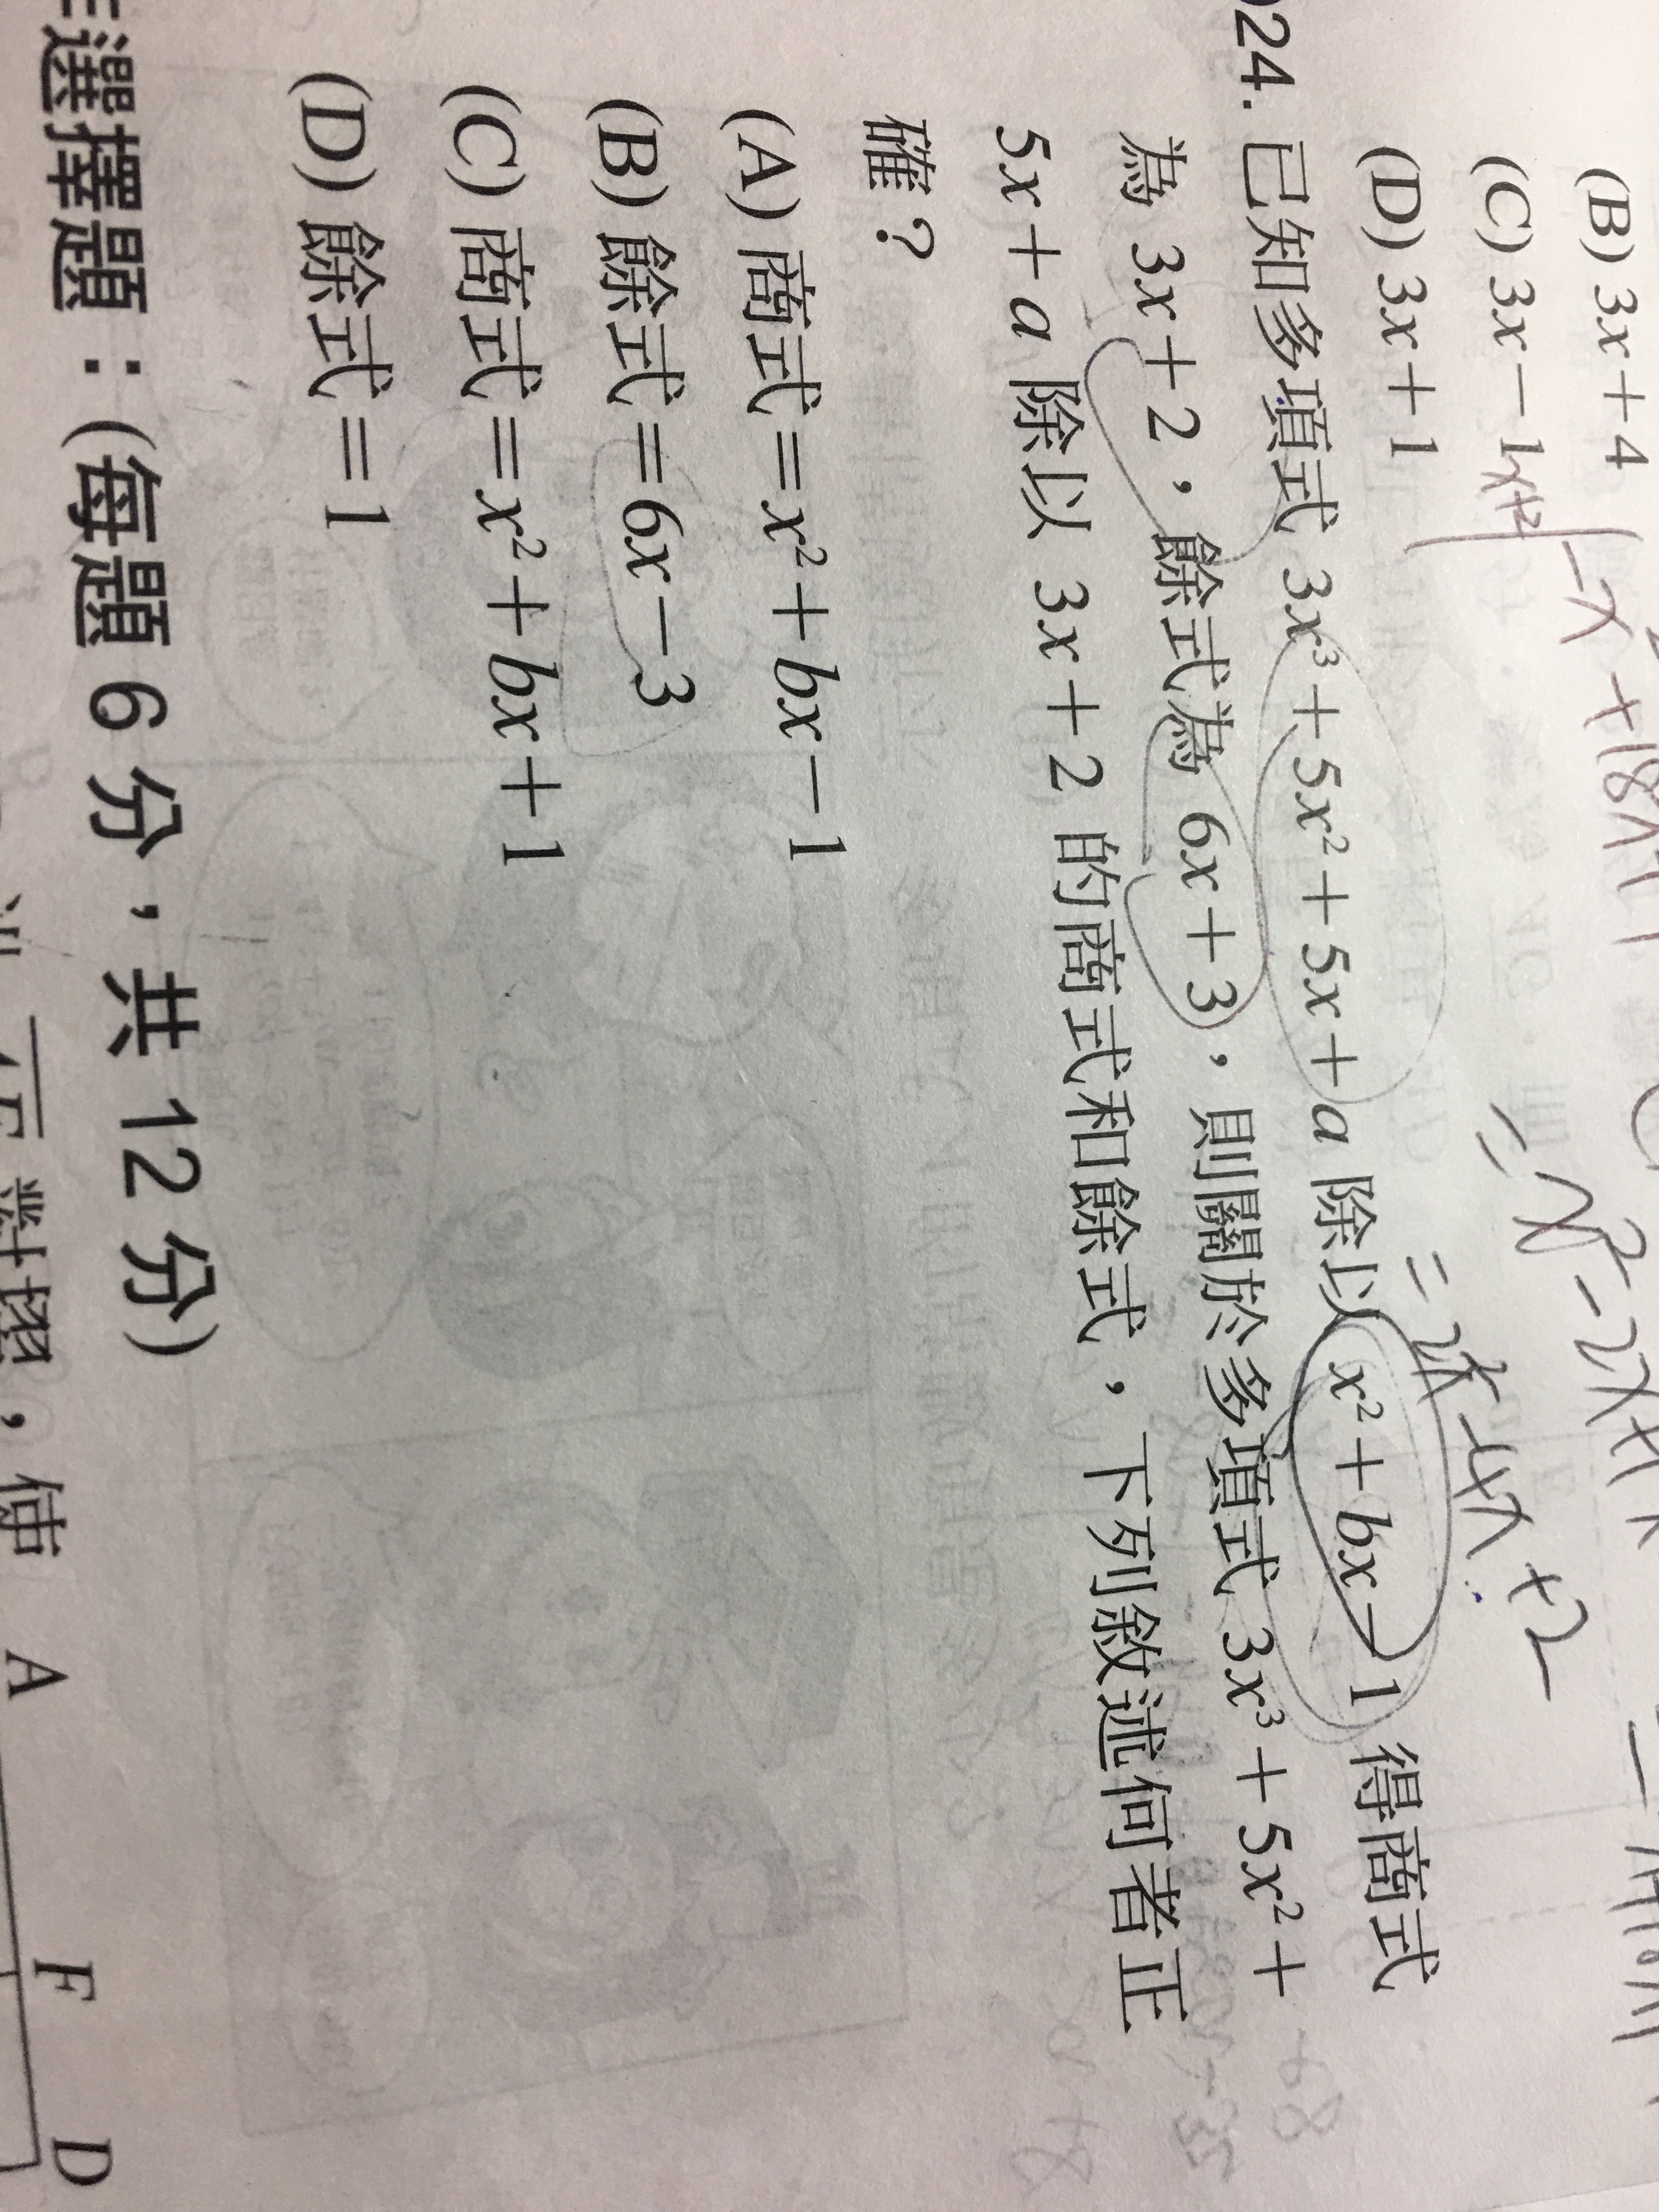 (B) 3x+4
(C) 3x−1
(D) 3x+1
−x+18x
=x²−2x+
=2x²−4x+2
24. 已知多項式 3x³+5x²+5x+a 除以 x²+bx−1 得商式
為 3x+2，餘式為 6x+3，則關於多項式 3x³+5x²+
5x+a 除以 3x+2 的商式和餘式，下列敘述何者正
確？
(A) 商式=x²+bx−1
(B) 餘式=6x−3
(C) 商式=x²+bx+1
(D) 餘式=1
選擇題：(每題 6 分，共 12 分)
對摺，使
A
F
D